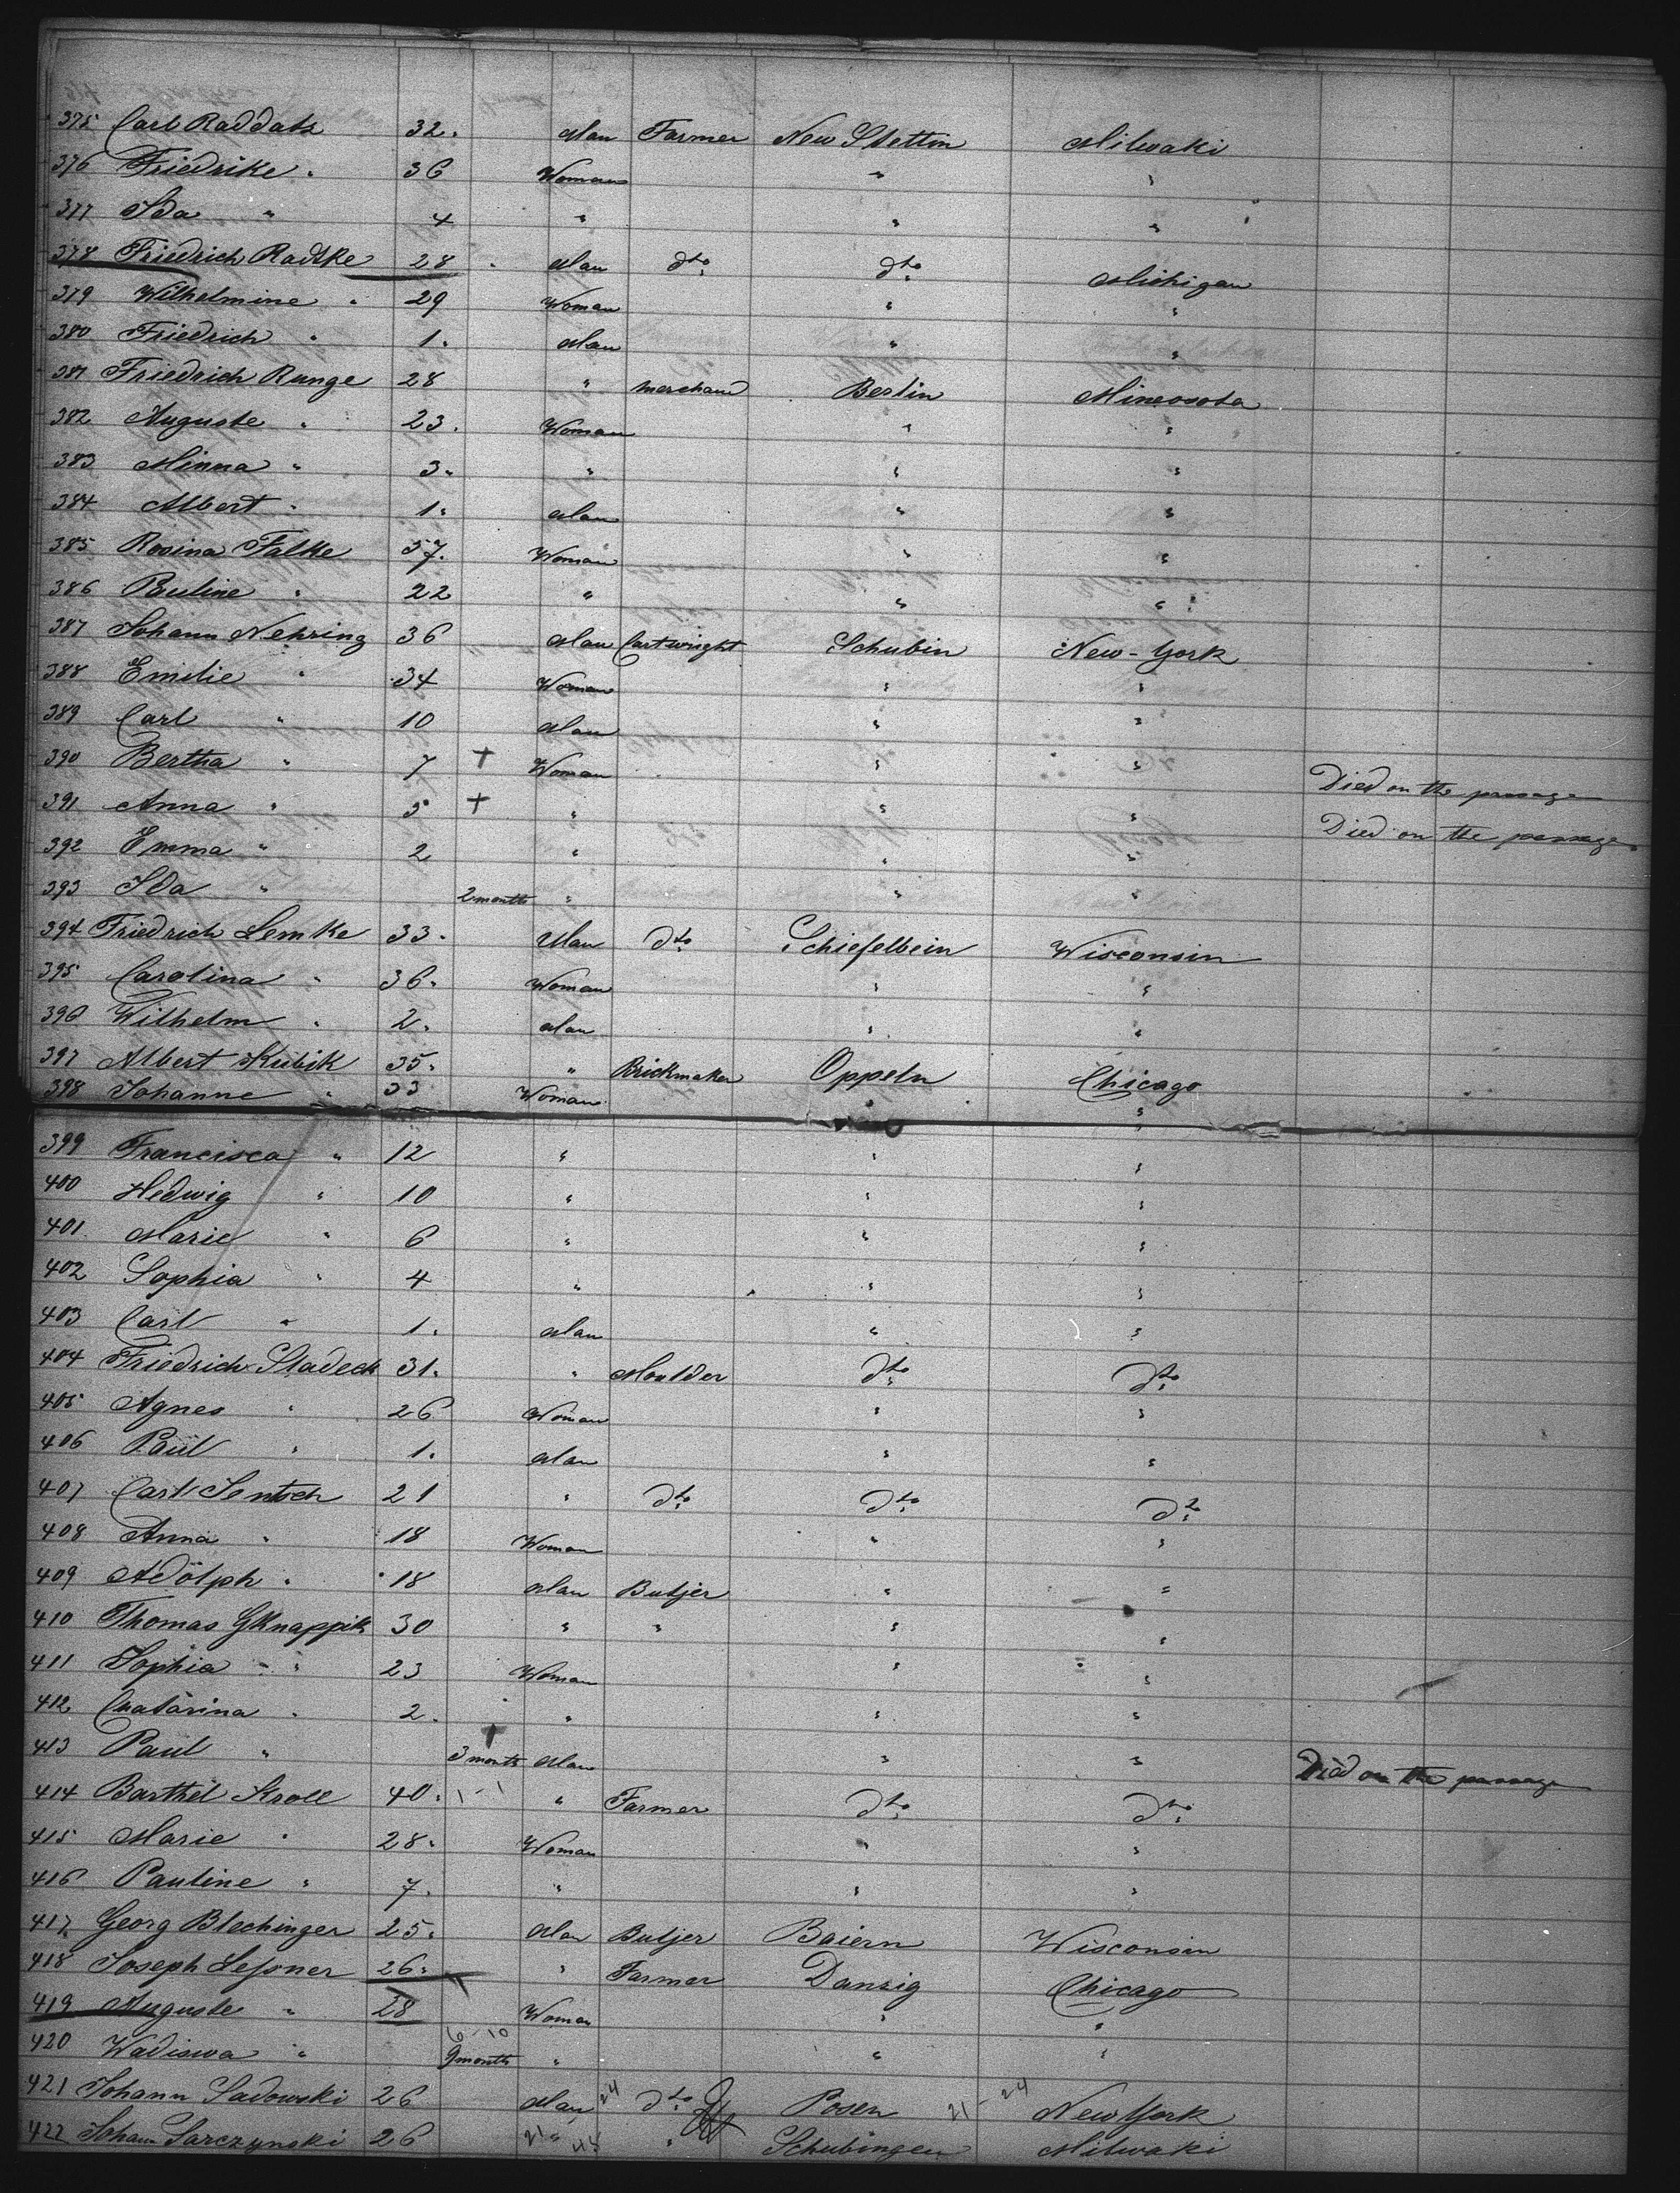 375 Carl Raddatz 32. Man Farmer New Stettin Milwaki
376 Friedrike " 36 Woman " "
377 Ida " 4 " " "
378 Friedrich Radtke 28 Man dto dto Michigan
379 Wilhelmine " 29 Woman " "
380 Friedrich " 1. Man " "
381 Friedrich Runge 28 " merchand Berlin Mineosota
382 Auguste " 23. Woman " "
383 Minna " 3. " " "
384 Albert " 1. Man " "
385 Rosina Falke 57. Woman " "
386 Pauline " 22 " " "
387 Johann Nehring 36 Man Cartwright Schubin New-York
388 Emilie " 34 Woman " "
389 Carl " 10 Man " "
390 Bertha " 7 + Woman " " Died on the passage
391 Anna " 5 + " " " Died on the passage
392 Emma " 2 " " "
393 Ida " 2 months " " "
394 Friedrich Lemke 33. Man dto Schiefelbein Wisconsin
395 Carolina " 36. Woman " "
396 Wilhelm " 2. Man " "
397 Albert Kubik 35. " Brickmaker Oppeln Chicago
398 Johanne " 33 Woman " "
399 Francisca " 12 " " "
400 Hedwig " 10 " " "
401 Marie " 6 " " "
402 Sophia " 4 " " "
403 Carl " 1. Man " "
404 Friedrich Sladeck 31. " Moulder dto dto
405 Agnes " 26 Woman " "
406 Paul " 1. Man " "
407 Carl Jentsch 21 " dto dto dto
408 Anna " 18 Woman " "
409 Adolph " 18 Man Butjer " "
410 Thomas GKnappik 30 " " " "
411 Sophia " 23 Woman " "
412 Chatarina " 2. " " "
413 Paul " + 3 month Man " " Died on the passage
414 Barthel Kroll 40. " Farmer dto dto
415 Marie " 28. Woman " "
416 Pauline " 7. " " "
417 Georg Blechinger 25. Man Butjer Baiern Wisconsin
418 Joseph Leßner 26. " Farmer Danzig Chicago
419 Auguste " 28 Woman " "
420 Wadiswa " 9 months " " "
421 Johann Sadowski 26 Man dto Posen New York
422 Johann Sarczynski 26 " " Schubingen Milwaki